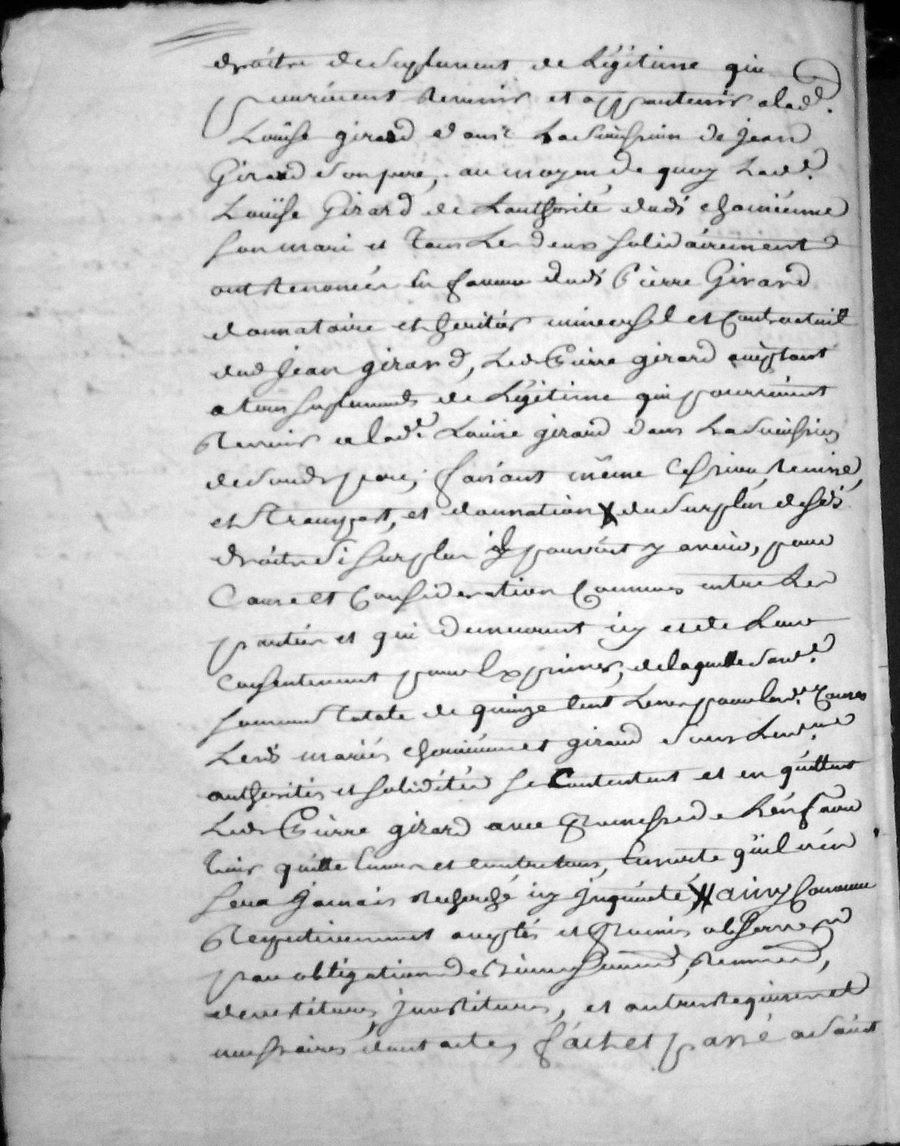 droits de suplement de Légitime qui
pourroient revenir et appartenir a lad.e
Louise girard dans La succession de jean
Girard son pere, au moyen de quoy Lad.e
Louise Girard de Lauthorité dudt
son mari et Tous Les deux solidairement
ont renoncés en faveur dudt Pierre Girard
donnataire et heritier universel et Contractuel
dud jean girard, Led Pierre girard aceptant
a tous suplements de Légitime qui pourroient
revenir a lad.e Louise girard dans La succession
de sond pere, faisant même Cession remise
et Transport, et donnation X du surplus desdts
droits si surplus il pouvoit y avoir, pour
Cause et Consideration Connues entre Les
parties et qui demeurent icy et de Leur
consentement pour Exprimés, de laquelle susd.e
somme Totale de quinze Cent Livres pour lesd.es Causes
Lesdt mariés et girard sous Leurs
authorités et solidités se Contentent et en quittent
Led Pierre girard avec promesse de L'en faire
Tenir quitte Envers et Contre tous, Ensorte qu'il n'en
sera jamais recherché ny Inquiété X ainsy Convenu
Respectivement aceptés et promis observer
par obligation de Biens, serment, renonc,
et autres requises et
necessaires dont acte, fait et passé a